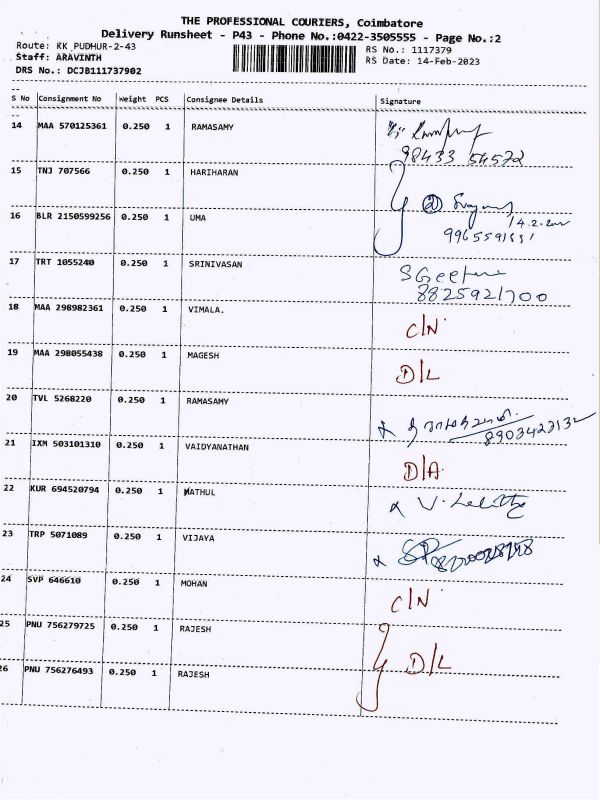 THE PROFESSIONAL COURIERS, Coimbatore
Delivery Runsheet - P43 - Phone No.:0422-3505555 - Page No.:2
Route: KK PUDHUR-2-43 RS No.: 1117379
Staff: ARAVINTH RS Date: 14-Feb-2023
DRS No.: DCJB111737902
S No Consignment No Weight PCS Consignee Details Signature
14 MAA 570125361 0.250 1 RAMASAMY
98433 54572
15 TNJ 707566 0.250 1 HARIHARAN
16 BLR 2150599256 0.250 1 UMA
17 TRT 1055240 0.250 1 SRINIVASAN S Geetha
8825921700
18 MAA 298982361 0.250 1 VIMALA. C/N
19 MAA 298055438 0.250 1 MAGESH D/L
20 TVL 5268220 0.250 1 RAMASAMY
8903423132
21 IXM 503101310 0.250 1 VAIDYANATHAN D/A
22 KUR 694520794 0.250 1 MATHUL V. Lalitha
23 TRP 5071089 0.250 1 VIJAYA
24 SVP 646610 0.250 1 MOHAN C/N
25 PNU 756279725 0.250 1 RAJESH D/L
26 PNU 756276493 0.250 1 RAJESH